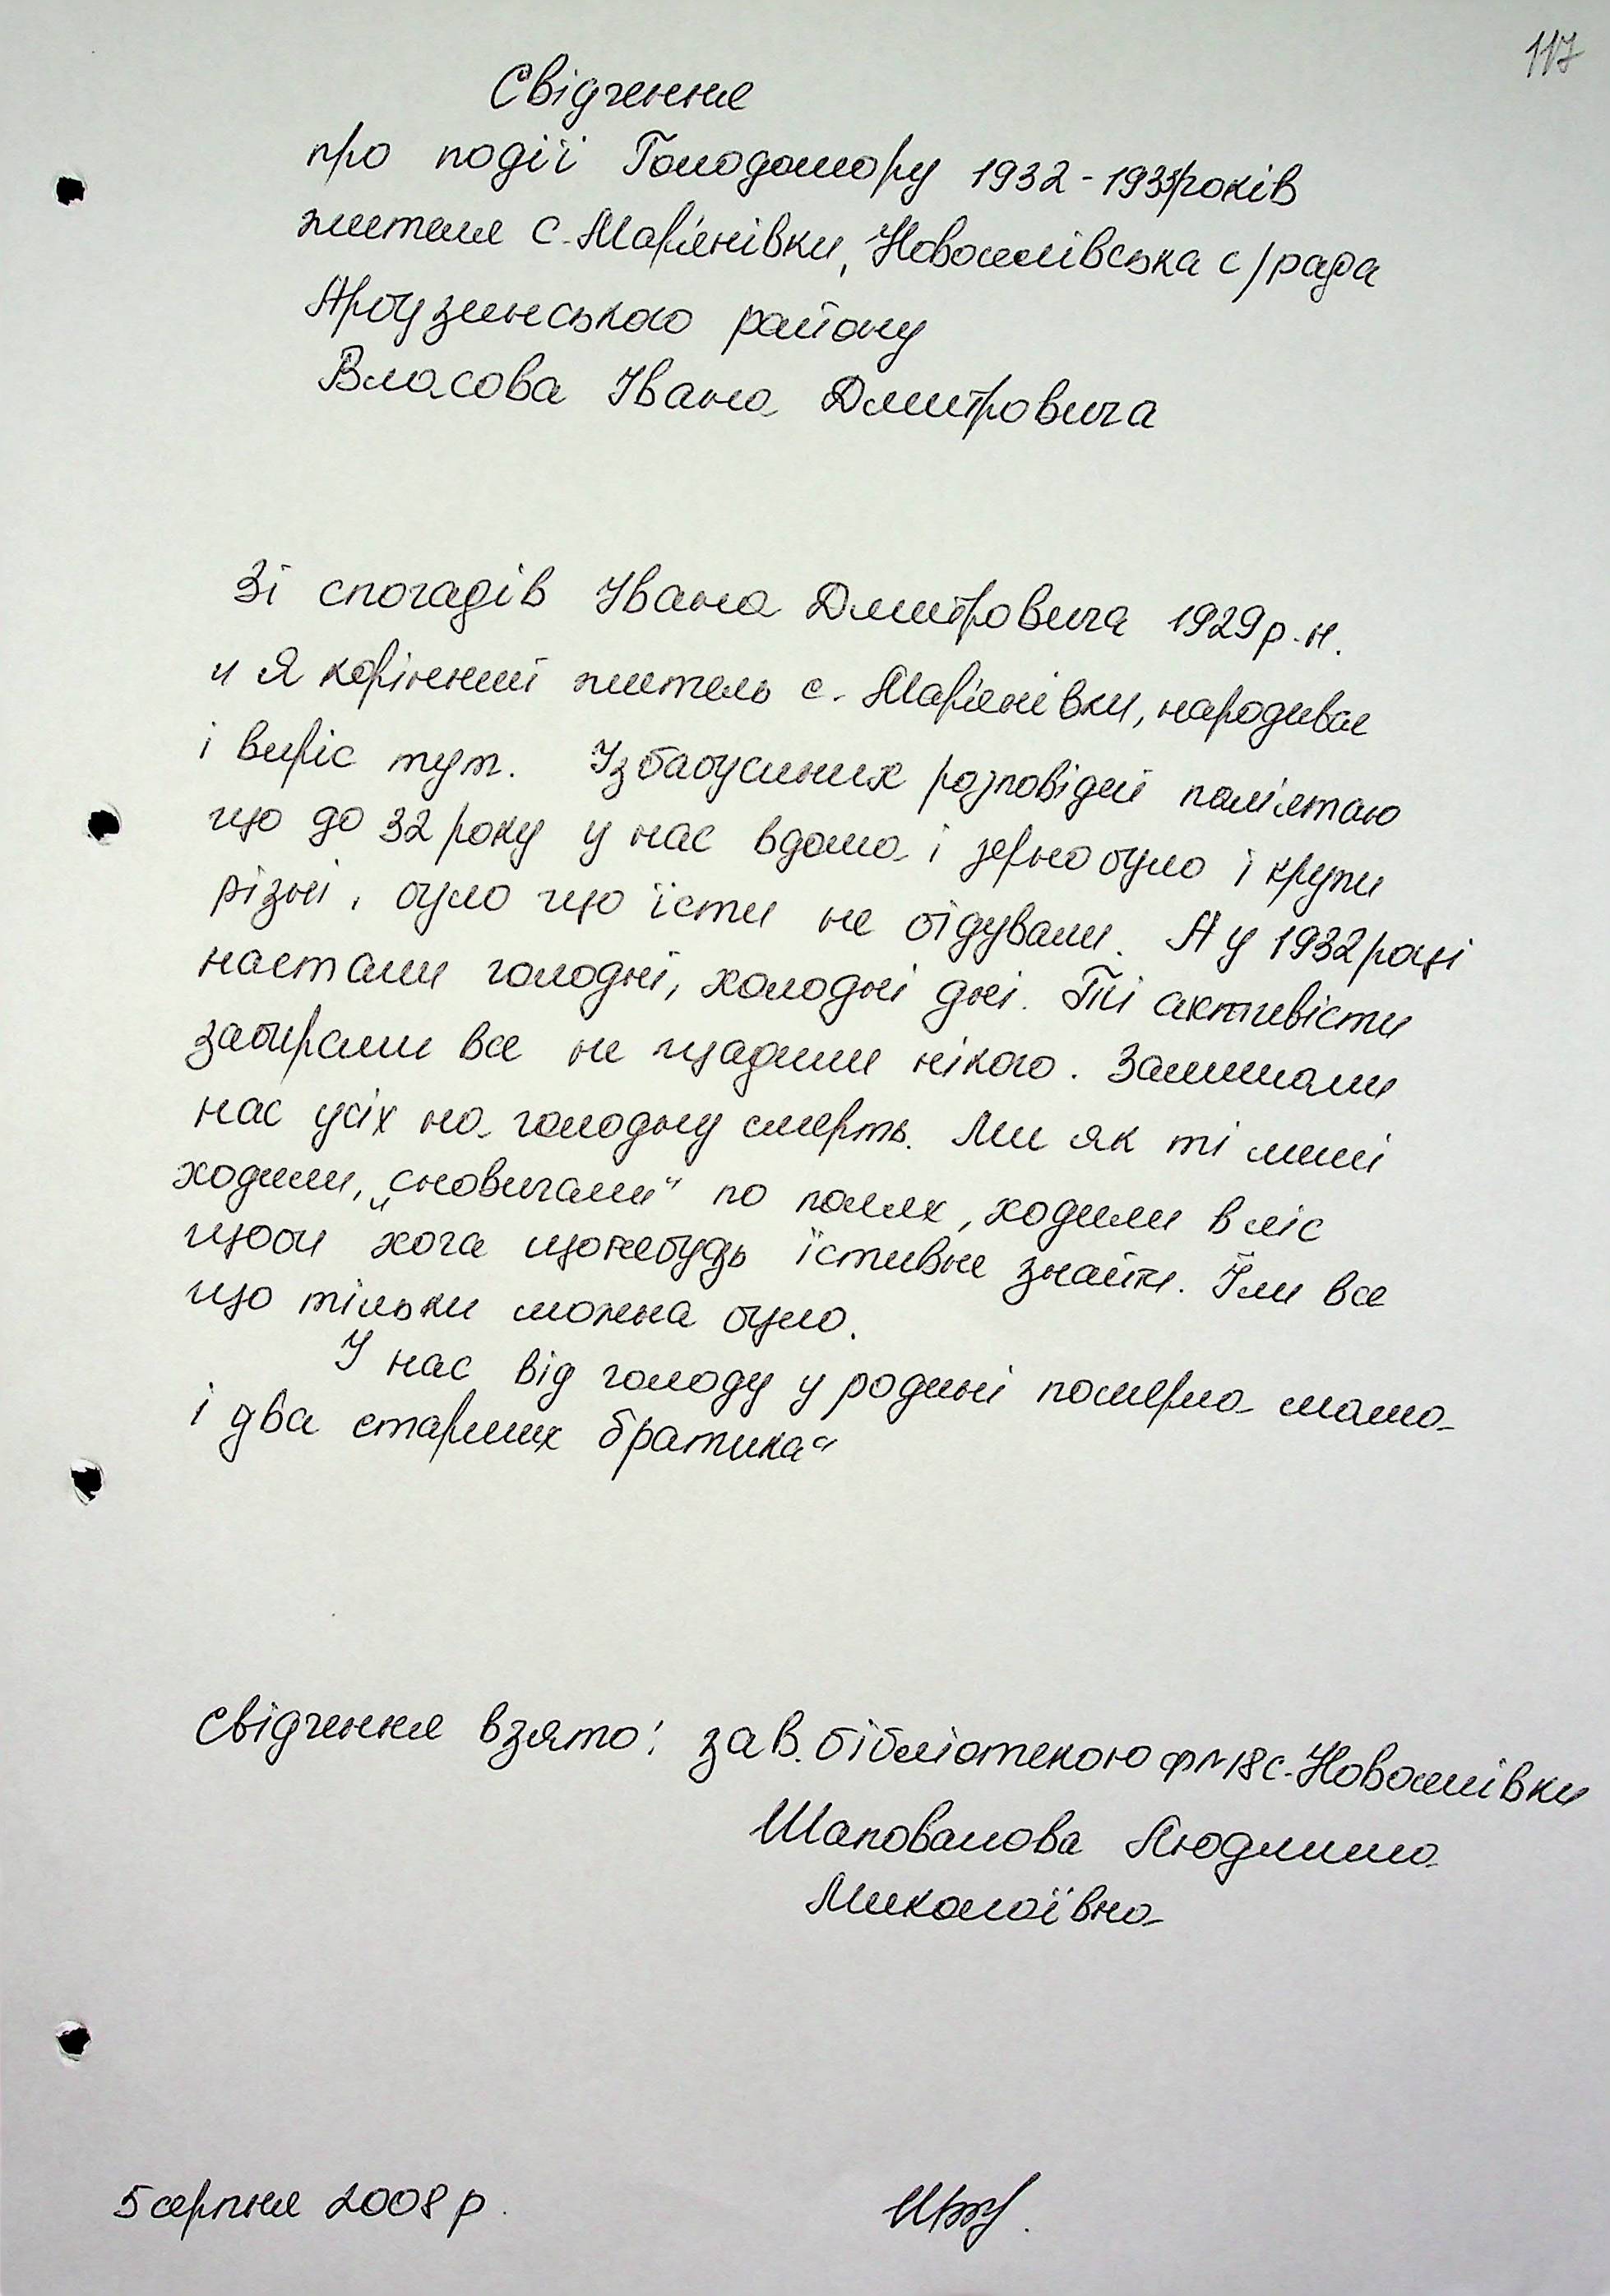 117
Свідчення
про події Голодомору 1932-1933 років
жителя с. Мар'янівки, Новоселівська с/рада
Арбузинського району
Власова Івана Дмитровича
Зі спогадів Івана Дмитровича 1929 р.н.
"Я корінний житель с. Мар'янівки, народився
і виріс тут. Із бабусиних розповідей пам'ятаю
що до 32 року у нас вдома і зерно було і крупи
різні, було що їсти не бідували. А у 1932 році
настали голодні, холодні дні. Ті активісти
забирали все не щадили нікого. Залишали
нас усіх на голодну смерть. Ми як ті миші
ходили, „сновигали“ по полях, ходили в ліс
щоби хоча щонебудь їстивне знайти. Їли все
що тільки можна було.
У нас від голоду у родині померла мама
і два старших братика“
Свідчення взято: зав. бібліотекою ф№18 с. Новоселівки
Шаповалова Людмила
Миколаївна
5 серпня 2008 р.